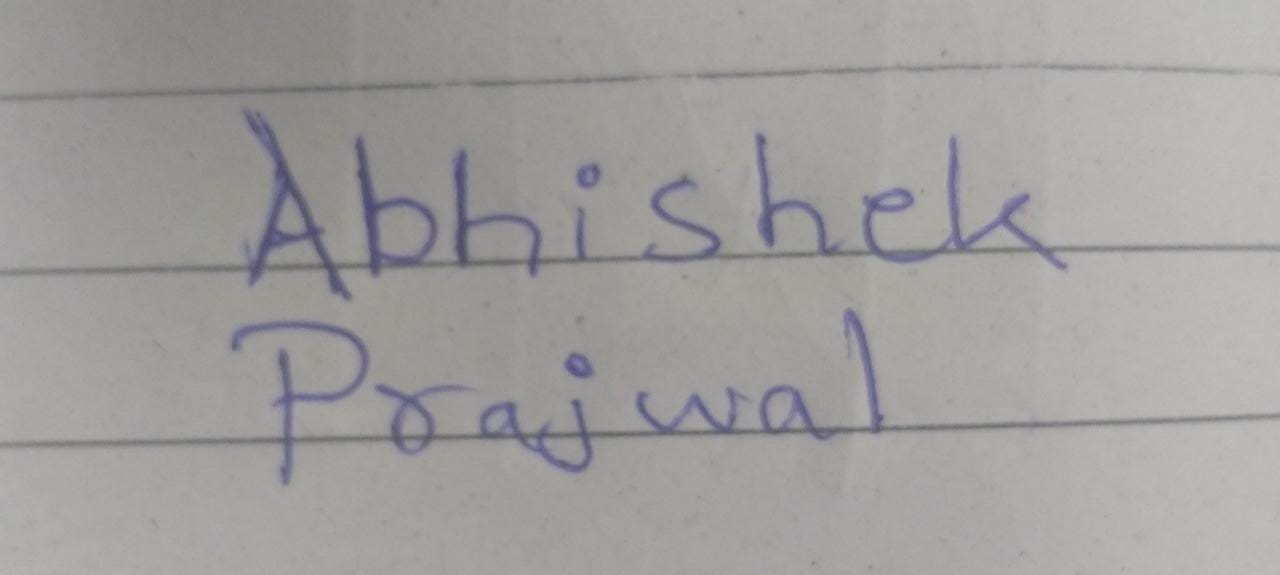 Abhishek
Prajwal